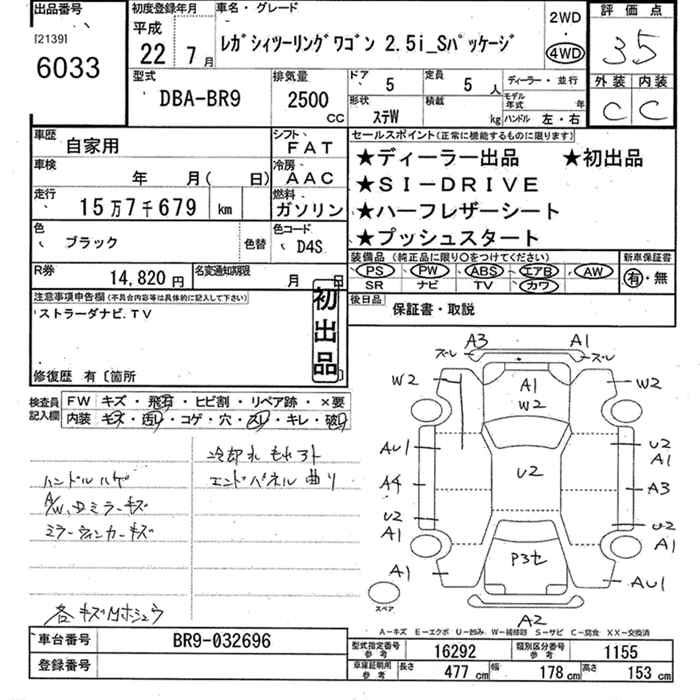 出品番号
[2139]
6033
初度登録年月
平成
22年 7月
車名・グレード
レガシィツーリングワゴン 2.5i_Sパッケージ
2WD
・
4WD
評価点
3.5
外装 内装
C C
型式
DBA-BR9
排気量
2500
CC
ドア 5
定員 5人
ディーラー・並行
形状
ステW
積載 kg
モデル年式 年
ハンドル 左・右
車歴 自家用
シフト FAT
車検 年 月( 日)
冷房 AAC
走行 15万7千679 km
燃料 ガソリン
色 ブラック 色替
色コード D4S
R券 14,820円
名変通知期限 月 日
セールスポイント(正常に機能するものに限ります)
★ディーラー出品 ★初出品
★SI-DRIVE
★ハーフレザーシート
★プッシュスタート
装備品(純正品に限り○をつけてください)
PS PW ABS エアB AW
SR ナビ TV カワ
新車保証書
有・無
後日品 保証書・取説
注意事項申告欄(不具合内容等は具体的に記入して下さい)
ストラーダナビ.TV
初出品
修復歴 有〔箇所 〕
検査員記入欄
FW キズ・飛石・ヒビ割・リペア跡・×要
内装 キズ・汚レ・コゲ・穴・スレ・キレ・破レ
冷却水もれアト
ハンドルハゲ
エンドパネル曲り
ミラーウィンカーキズ
A3 A1
ズレ ズレ
W2 A1 W2 W2
AU1 U2 U2 A1
A4 A3
U2 A1 U2 A1
A1 P3セ AU1
スペア
A2
A-キズ E-エクボ U-凹み W-補修跡 S-サビ C-腐食 XX-交換済
車台番号 BR9-032696
登録番号
型式指定番号 参考 16292
類別区分番号 参考 1155
車庫証明用 参考 長さ 477cm 幅 178cm 高さ 153cm